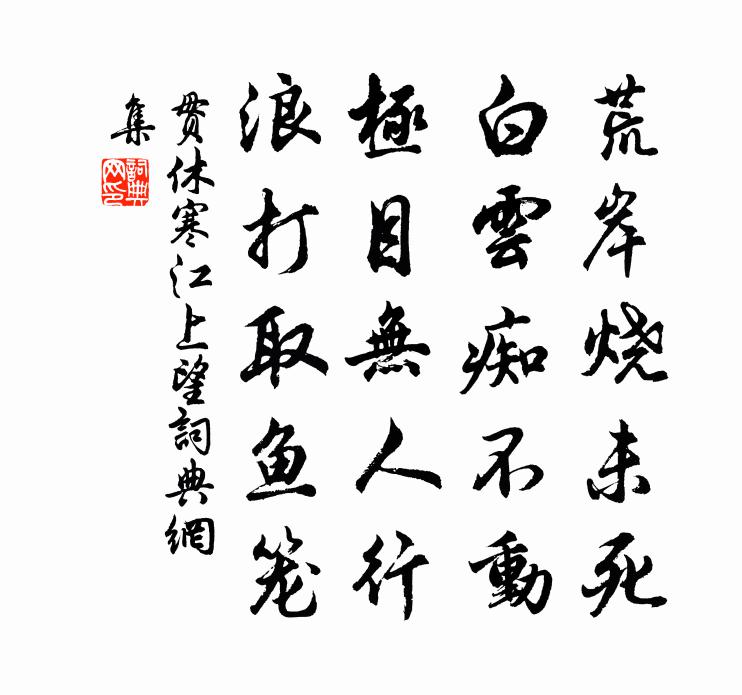 荒岸烧未死
白雲痴不動
極目無人行
浪打取鱼笼
貫休寒江上望詞典網
集
詞典
网印